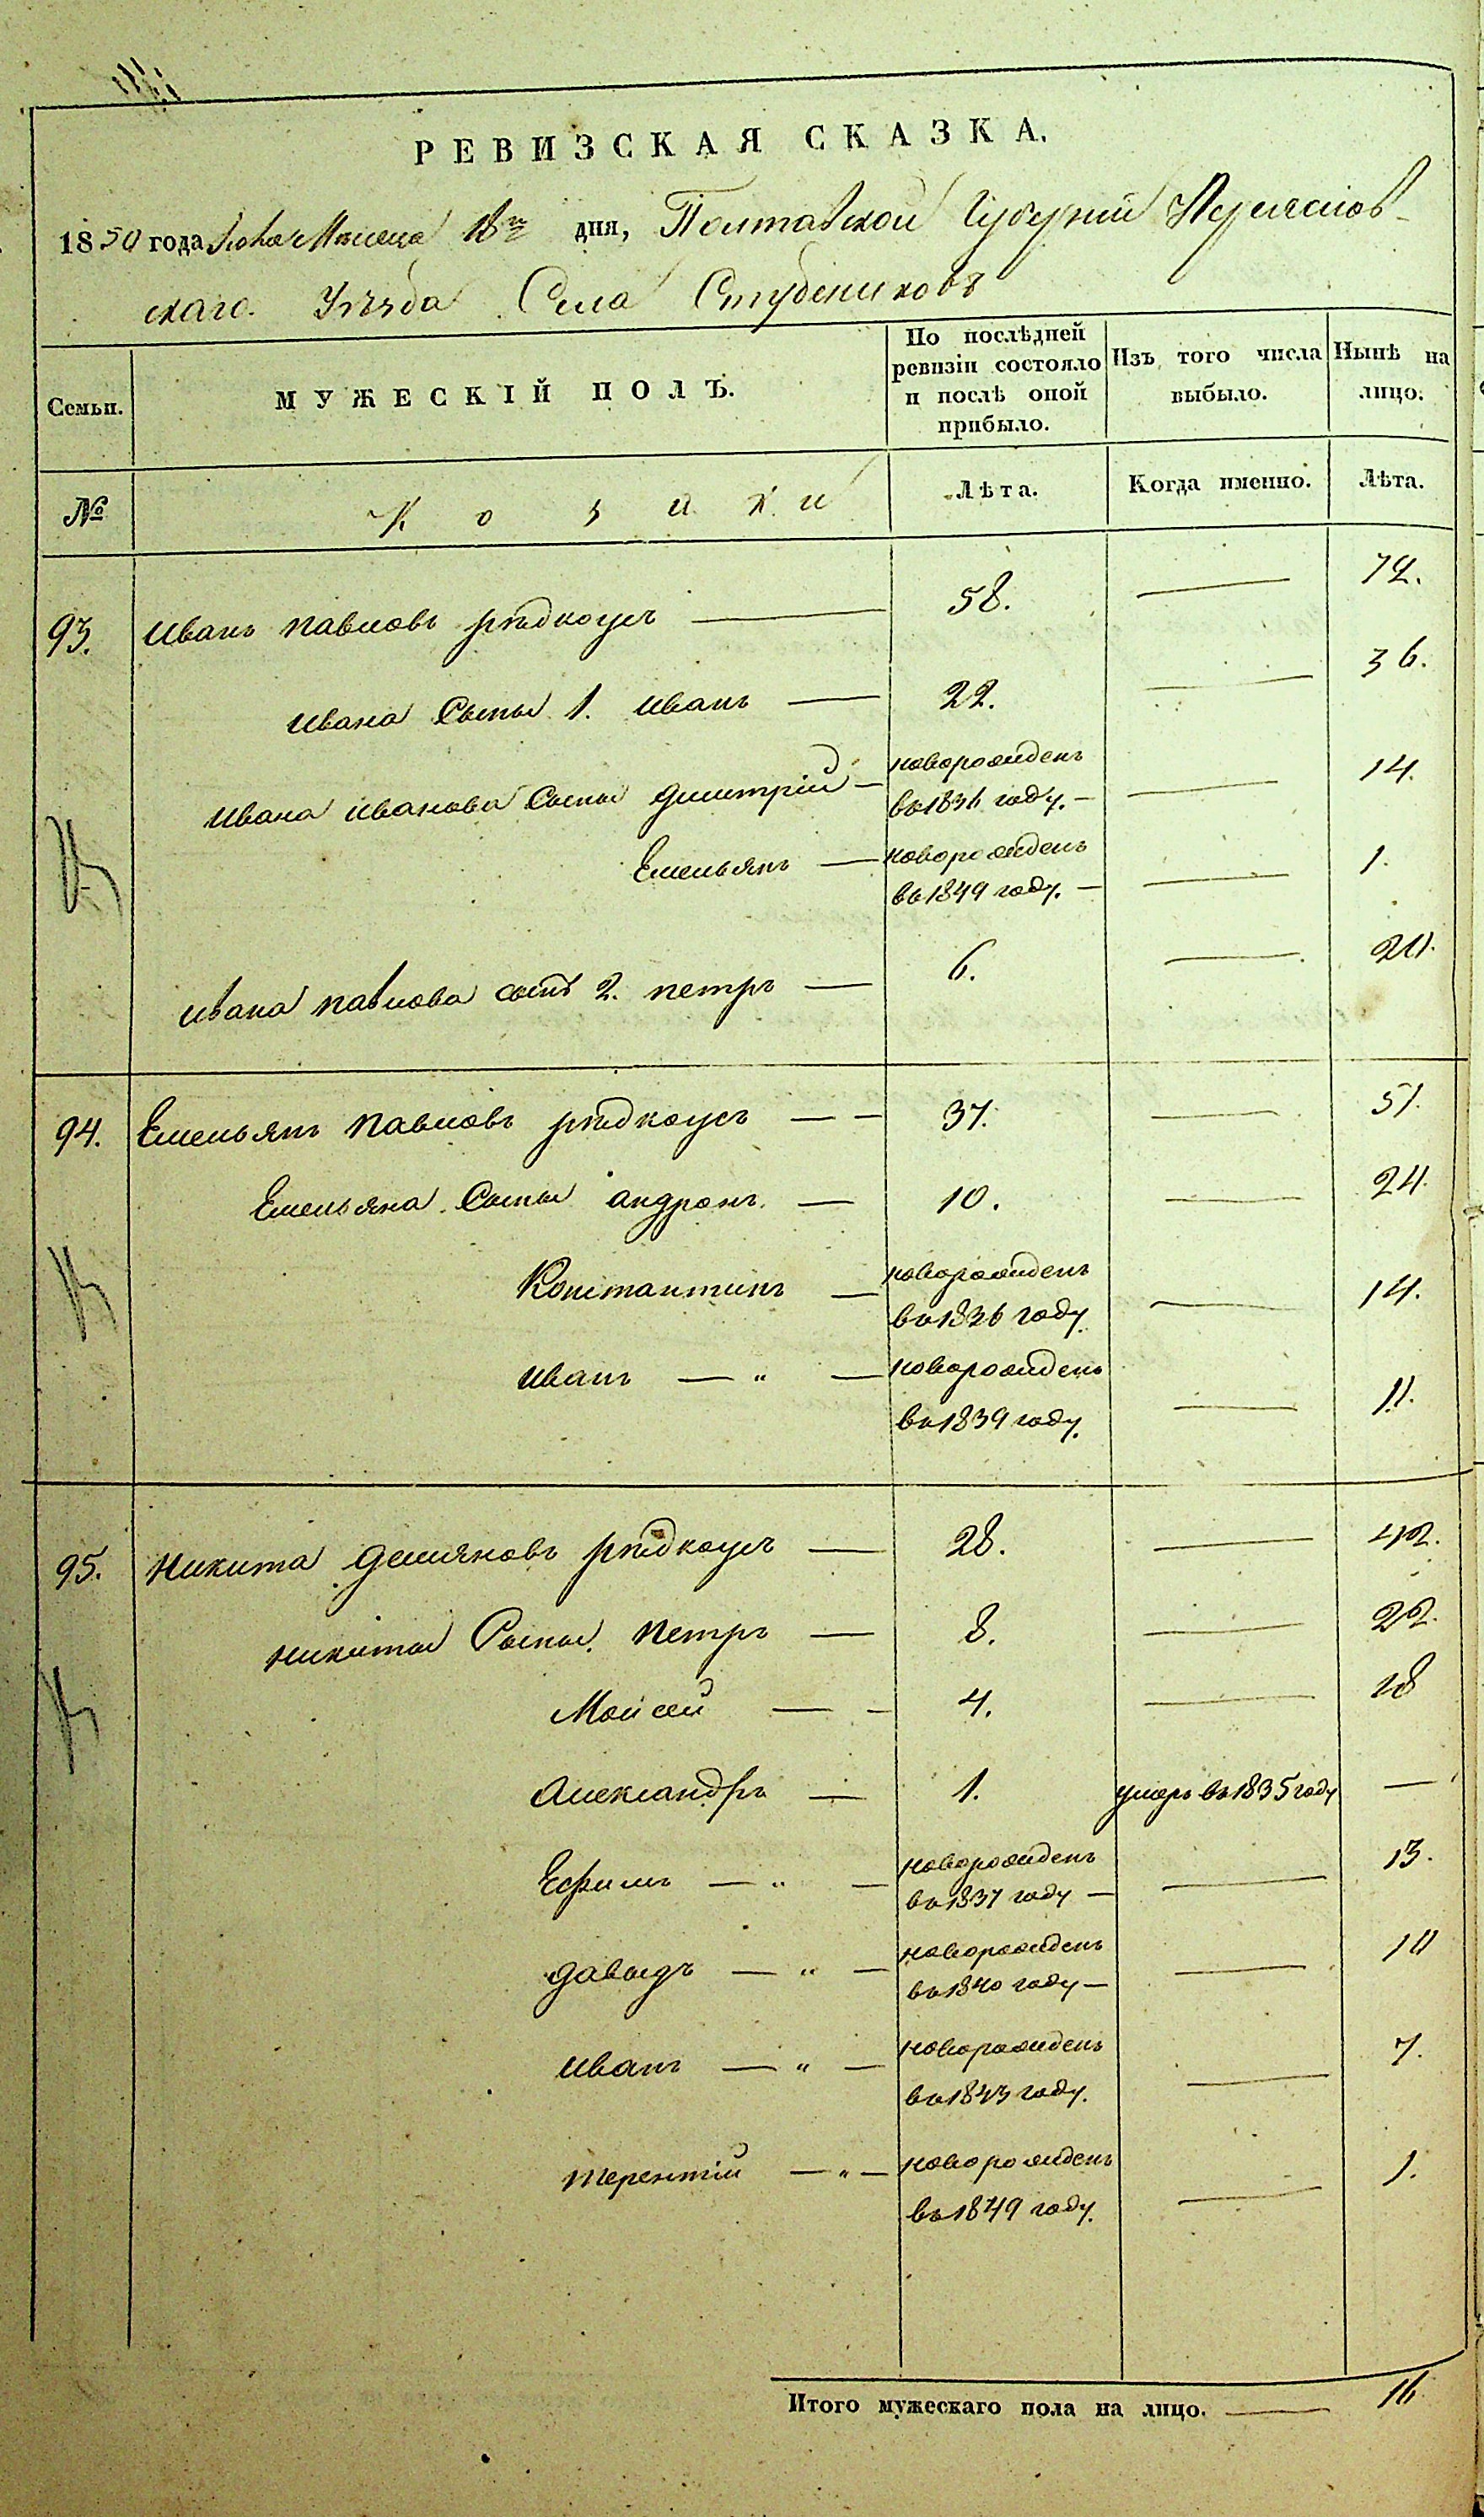 РЕВИЗСКАЯ СКАЗКА.
1850 года Месяца 18го дня, Полтавской Губерніи Переяслов-
скаго Уѣзда Села Студениковъ
Семьи.
МУЖЕСКІЙ ПОЛЪ.
По послѣдней ревизіи состояло и послѣ оной прибыло.
Изъ того числа выбыло.
Нынѣ на лицо.
№ Козаки Лѣта. Когда именно. Лѣта.
93. Иванъ Павловъ рѣдкоусъ — 58. — 72.
Ивана Сыны 1. Иванъ — 22. — 36.
Ивана Иванова Сыны Дмитрій — новорожденъ въ 1836 году. — 14.
Емельянъ — новорожденъ въ 1849 году. — 1.
Ивана Павлова сынъ 2. Петръ — 6. — 20.
94. Емельянъ Павловъ рѣдкоусъ — — 37. — 51.
Емельяна Сыны Андронъ. — 10. — 24.
Константинъ — новорожденъ въ 1836 году. — 14.
Иванъ — " — новорожденъ въ 1839 году. — 11.
95. Никита Демяновъ рѣдкоусъ — 28. — 42.
Никиты Сыны. Петръ — 8. — 22.
Моисей — - 4. — 18
Александръ — 1. умеръ въ 1835 году —
Ефимъ — " — новорожденъ въ 1837 году — — 13.
Давыдъ — " — новорожденъ въ 1840 году — — 10
Иванъ — " — новорожденъ въ 1843 году. — 7.
Терентій — " — новорожденъ въ 1849 году. — 1.
Итого мужескаго пола на лицо. — 16